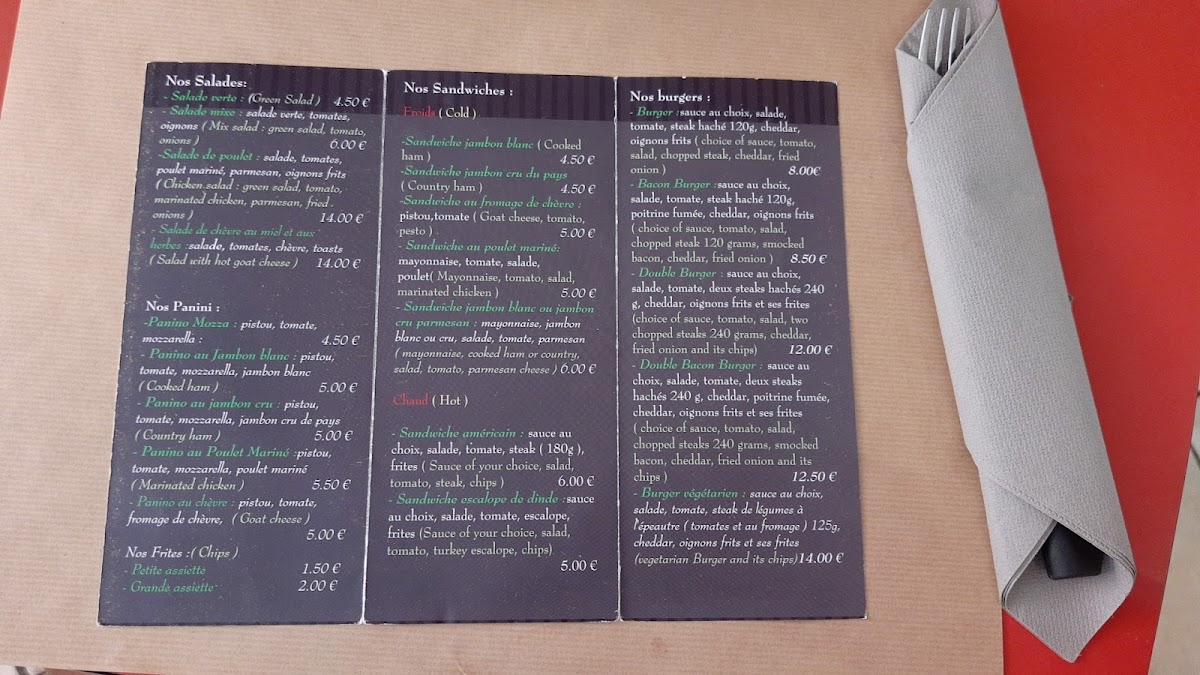 Nos Salades:
- Salade verte : (Green Salad ) 4.50 €
- Salade mixe : salade verte, tomates,
oignons ( Mix salad : green salad, tomato,
onions ) 6.00 €
-Salade de poulet : salade, tomates,
poulet mariné, parmesan, oignons frits
( Chicken salad : green salad, tomato,
marinated chicken, parmesan, fried
onions ) 14.00 €
- Salade de chèvre au miel et aux
herbes :salade, tomates, chèvre, toasts
( Salad with hot goat cheese ) 14.00 €
Nos Panini :
-Panino Mozza : pistou, tomate,
mozzarella : 4.50 €
- Panino au Jambon blanc : pistou,
tomate, mozzarella, jambon blanc
( Cooked ham ) 5.00 €
- Panino au jambon cru : pistou,
tomate, mozzarella, jambon cru de pays
( Country ham ) 5.00 €
- Panino au Poulet Mariné :pistou,
tomate, mozzarella, poulet mariné
( Marinated chicken ) 5.50 €
- Panino au chèvre : pistou, tomate,
fromage de chèvre, ( Goat cheese )
5.00 €
Nos Frites :( Chips )
- Petite assiette 1.50 €
- Grande assiette 2.00 €
Nos Sandwiches :
Froids ( Cold )
-Sandwiche jambon blanc ( Cooked
ham ) 4.50 €
-Sandwiche jambon cru du pays
( Country ham ) 4.50 €
- Sandwiche au fromage de chèvre :
pistou,tomate ( Goat cheese, tomato,
pesto ) 5.00 €
- Sandwiche au poulet mariné:
mayonnaise, tomate, salade,
poulet( Mayonnaise, tomato, salad,
marinated chicken ) 5.00 €
- Sandwiche jambon blanc ou jambon
cru parmesan : mayonnaise, jambon
blanc ou cru, salade, tomate, parmesan
( mayonnaise, cooked ham or country,
salad, tomato, parmesan cheese ) 6.00 €
Chaud ( Hot )
- Sandwiche américain : sauce au
choix, salade, tomate, steak ( 180g ),
frites ( Sauce of your choice, salad,
tomato, steak, chips ) 6.00 €
- Sandwiche escalope de dinde :sauce
au choix, salade, tomate, escalope,
frites (Sauce of your choice, salad,
tomato, turkey escalope, chips)
5.00 €
Nos burgers :
- Burger :sauce au choix, salade,
tomate, steak haché 120g, cheddar,
oignons frits ( choice of sauce, tomato,
salad, chopped steak, cheddar, fried
onion ) 8.00€
- Bacon Burger :sauce au choix,
salade, tomate, steak haché 120g,
poitrine fumée, cheddar, oignons frits
( choice of sauce, tomato, salad,
chopped steak 120 grams, smocked
bacon, cheddar, fried onion ) 8.50 €
- Double Burger : sauce au choix,
salade, tomate, deux steaks hachés 240
g, cheddar, oignons frits et ses frites
(choice of sauce, tomato, salad, two
chopped steaks 240 grams, cheddar,
fried onion and its chips) 12.00 €
- Double Bacon Burger : sauce au
choix, salade, tomate, deux steaks
hachés 240 g, cheddar, poitrine fumée,
cheddar, oignons frits et ses frites
( choice of sauce, tomato, salad,
chopped steaks 240 grams, smocked
bacon, cheddar, fried onion and its
chips ) 12.50 €
- Burger végétarien : sauce au choix,
salade, tomate, steak de légumes à
l'épeautre ( tomates et au fromage ) 125g,
cheddar, oignons frits et ses frites
(vegetarian Burger and its chips)14.00 €